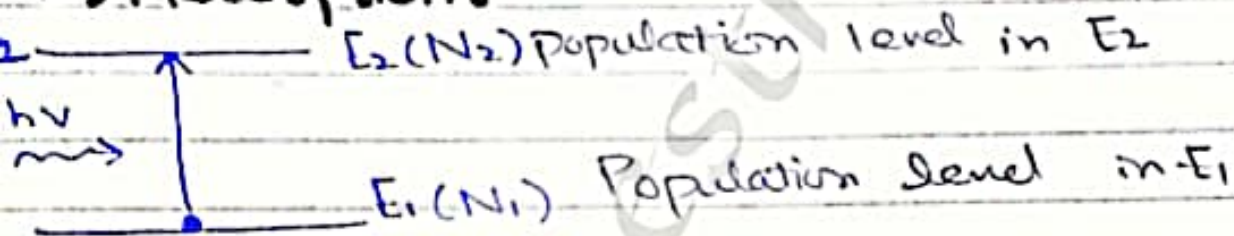 2 E2(N2) Population level in E2
hν
E1(N1) Population level in E1